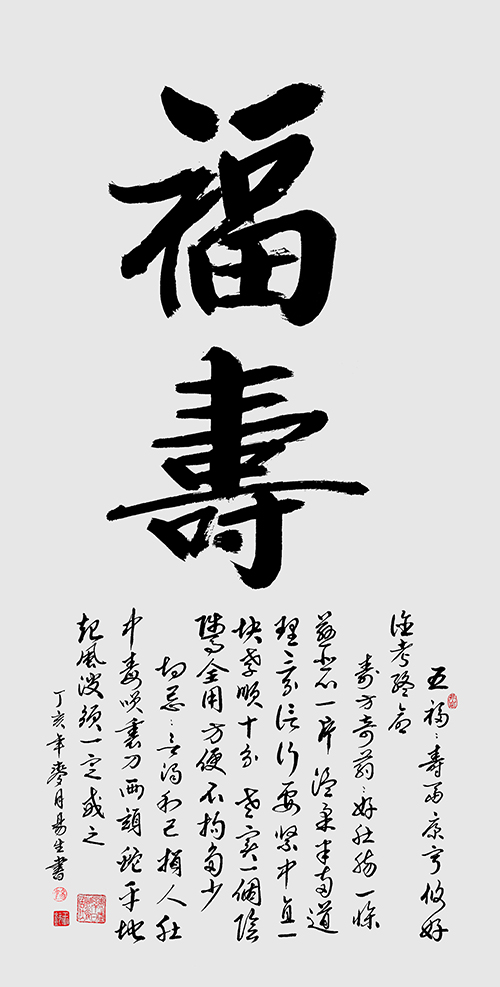 福
壽
五福：壽富康寧攸好
德考終命
壽方奇葯：好肚腸一條
慈悲心一片溫柔半兩道
理三分信行要緊中直一
块孝順十分老實一個陰
騭全用方便不拘多少
切忌：言濁利己損人肚
中毒笑裏刀兩頭蛇平地
起風波須一定戒之
丁亥年麥月易生書